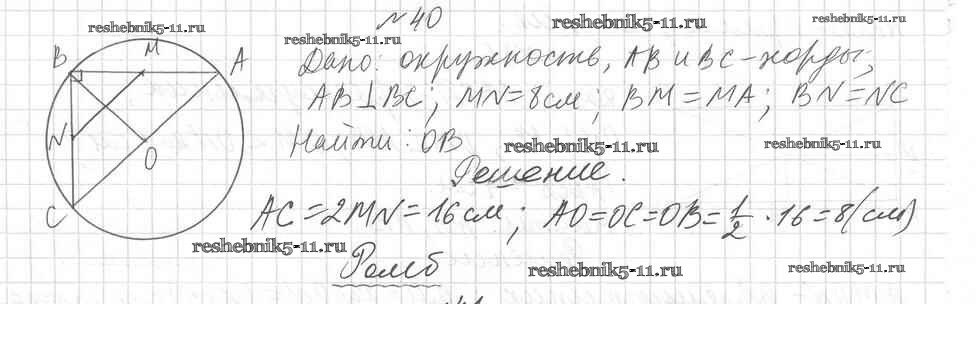 №40
reshebnik5-11.ru reshebnik5-11.ru reshebnik5-11.ru
reshebnik5-11.ru
B M A
Дано: окружность, AB и BC - хорды;
AB⊥BC; MN=8см; BM=MA; BN=NC
N O
Найти: OB
reshebnik5-11.ru reshebnik5-11.ru
Решение.
C
AC=2MN=16см; AO=OC=OB=1/2·16=8(см)
reshebnik5-11.ru
Ромб
reshebnik5-11.ru reshebnik5-11.ru